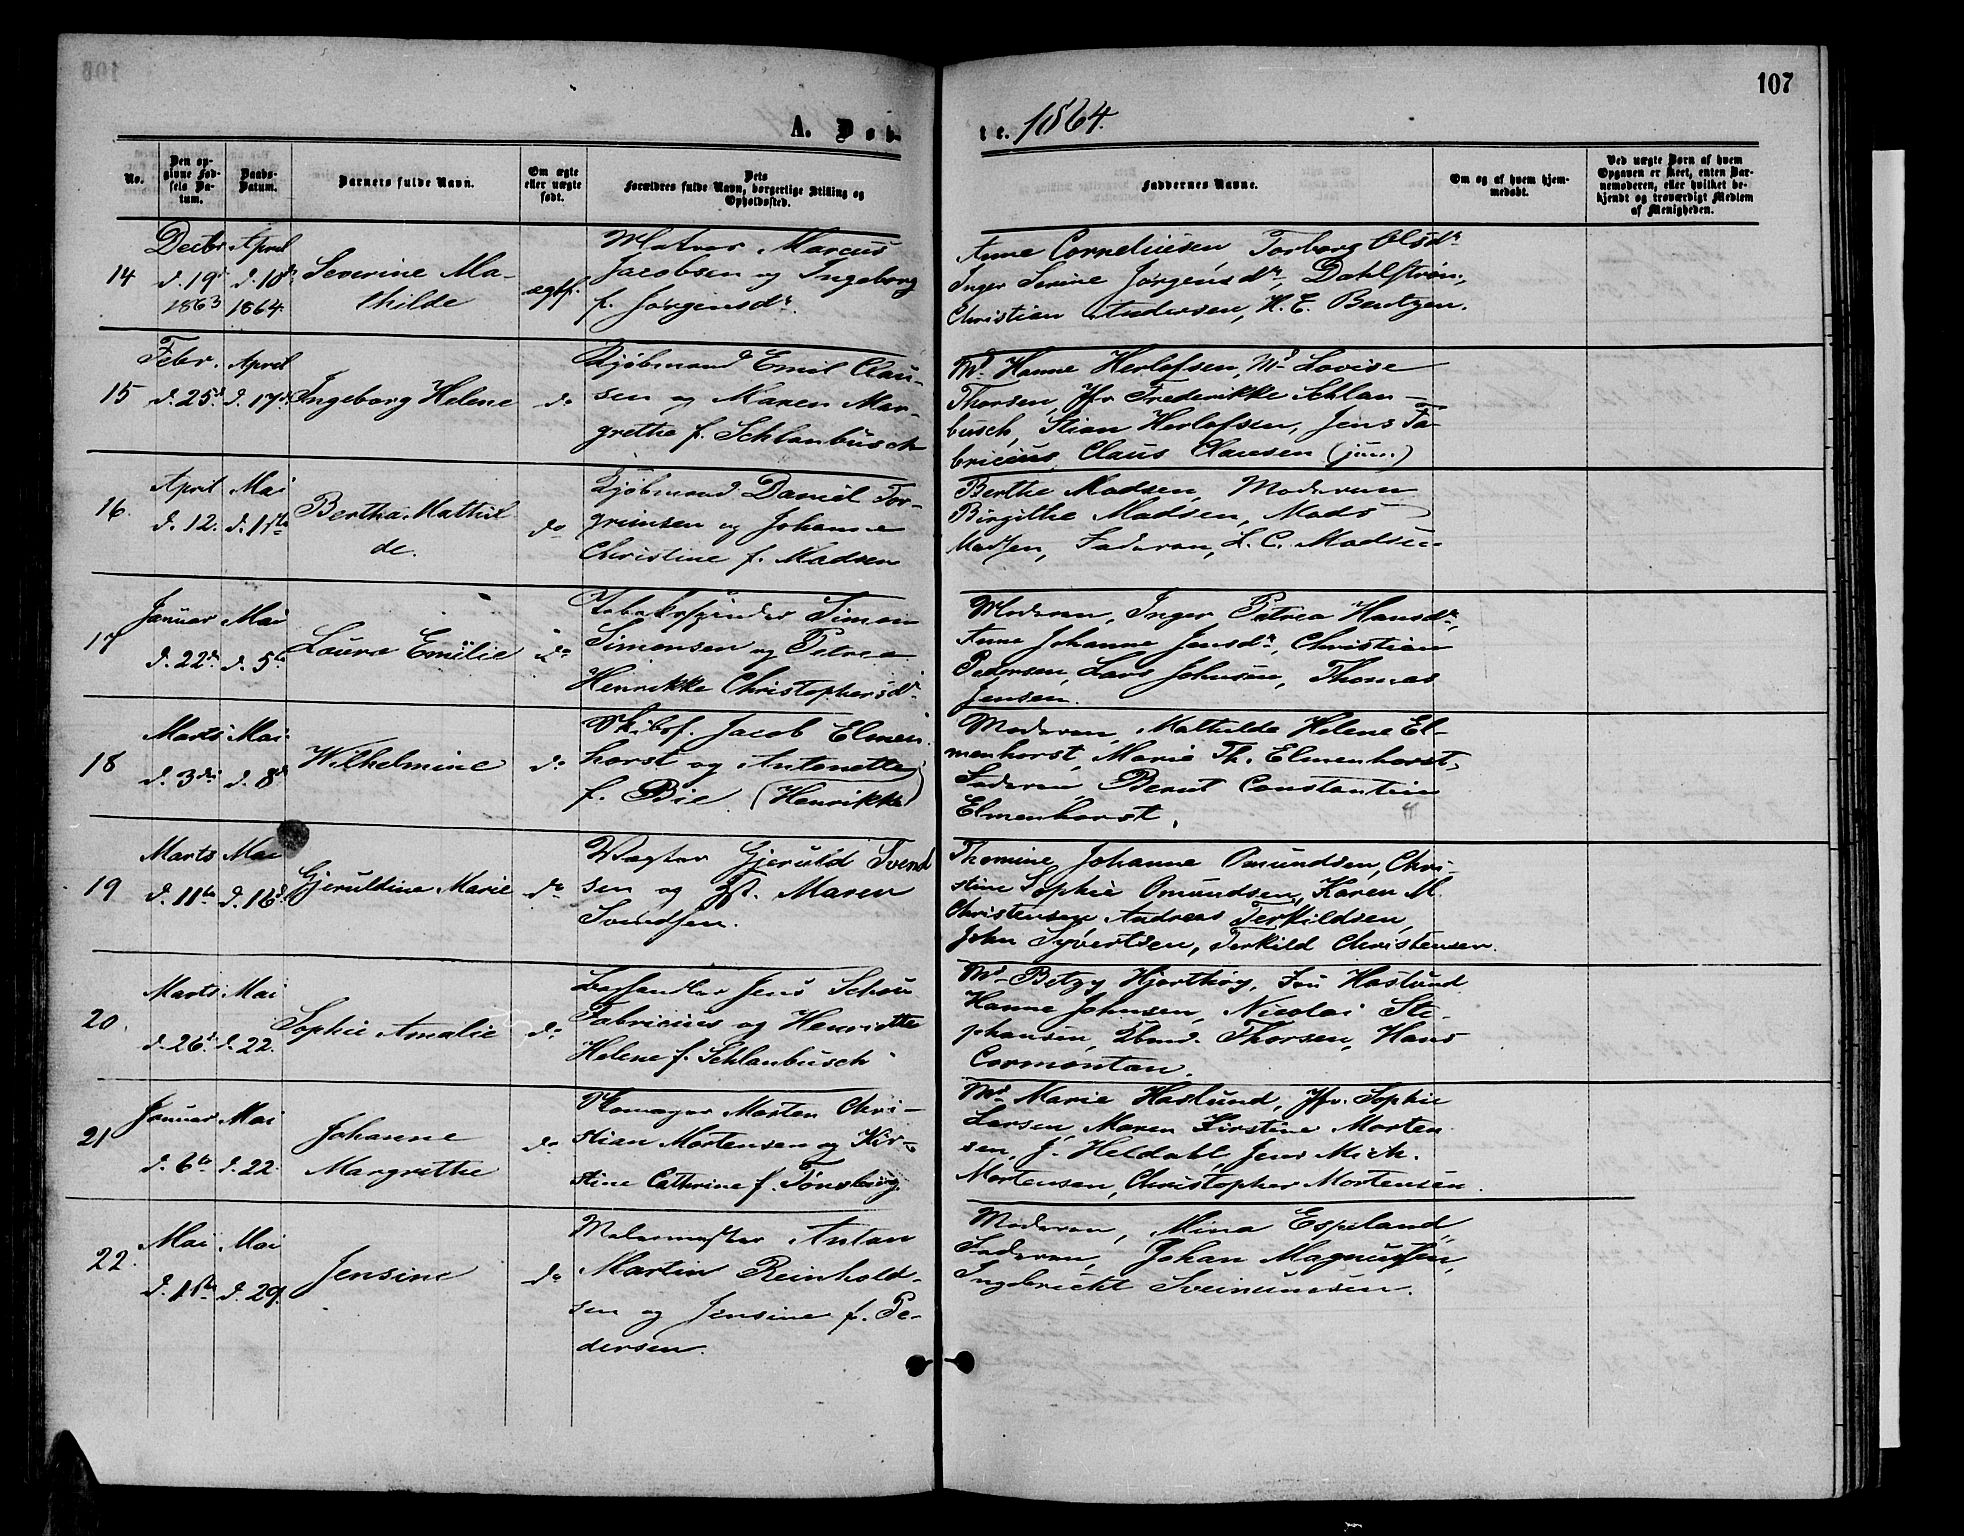 107
A. Døb-
te. 1864.
No.
Den op-
givne Fød-
sels Da-
tum.
Daabs-
Datum.
Barnets fulde Navn.
Om ægte
eller uægte
født.
Dets
Forældres fulde Navn, borgerlige Stilling og
Opholdssted.
Faddernes Navne.
Om og af hvem hjem-
medøbt.
Ved uægte Børn af hvem
Opgaven er skeet, enten Bar-
nemoderen, eller hvilket be-
kjendt og troværdigt Medlem
af Menigheden.
14
Decbr
d. 19
1863
April
d. 10de
1864
Severine Ma-
thilde
ægtf.
Matros Marcus
Jacobsen og Ingeborg
f. Jørgensdr.
Anne Corneliusen, Torborg Olsdr
Inger Serine Jørgensdr, Dahlstrøm,
Christian Andersen, H. E. Bentzen.
15
Febr.
d. 25
April
d. 17de
Ingeborg Helene
do
Kjøbmand Emil Clau-
sen og Maren Mar-
grethe f. Schlanbusch
Md. Hanne Herlofsen, Md Lovise
Thorsen, Jfr Frederikke Schlan-
busch, Stian Herlofsen, Jens Fa-
bricius, Claus Clausen (jun.)
16.
April
d. 12.
Mai
d. 1ste
Bertha Mathil
de.
do
Kjøbmand Daniel Tor-
grimsen og Johanne
Christine f. Madsen
Berthe Madsen, Moderen
Birgithe Madsen, Mads
Madsen, Faderen, L. C. Madsen
17
Januar
d. 22de
Mai
d. 5te
Laura Emilie
do
Tobaksspinder Simon
Simonsen og Petrea
Henrikke Christophersdr.
Moderen, Inger Petrea Hansdr,
Anne Johanne Jensdr, Christian
Pedersen, Lars Johnsen, Thomas
Jensen.
18
Marts
d. 3die
Mai
d. 8de
Wilhelmine
do
Skibsf. Jacob Elmen-
horst og Antonette
f. Bie (Henrikke)
Moderen, Mathilde Helene El-
menhorst, Marie Th. Elmenhorst,
Faderen, Bernt Constantin
Elmenhorst.
19
Marts
d. 11te
Mai
d. 16d.
Gjeruldine Marie
do
Vægter Gjeruld Svend
sen og Hst. Maren
Svendsen.
Thomine Johanne Omundsen, Chri-
stine Sophie Omundsen, Karen M.
Christensen, Andreas Terkildsen,
John Syvertsen, Terkild Christensen.
20.
Marts
d. 26
Mai
d. 22.
Sophie Amalie
do
Boghandler Jens Schou
Fabricius og Henriette
Helene f. Schlanbusch
Md Betzy Hjorthøy, Frk Haslund
Hanne Johnsen, Nicolai Ste-
phansen, Edmd. Thorsen, Hans
Cormontan.
21
Januar
d. 6te
Mai
d. 22.
Johanne
Margrethe
do
Skomager Morten Chri-
stian Mortensen og Kir-
stine Cathrine f. Tønsberg
Md Marie Haslund, Jfr. Sophie
Larsen, Maren Kirstine Morten
sen, J. Heldahl, Jens Mich.
Mortensen, Christopher Mortensen.
22.
Mai
d. 1ste
Mai
d. 29.
Jensine
do
Malermester Anton
Martin Reinhold-
sen og Jensine f. Pe-
dersen.
Moderen, Mina Espeland,
Faderen, Johan Magnussen,
Ingebricht Sveinunsen.